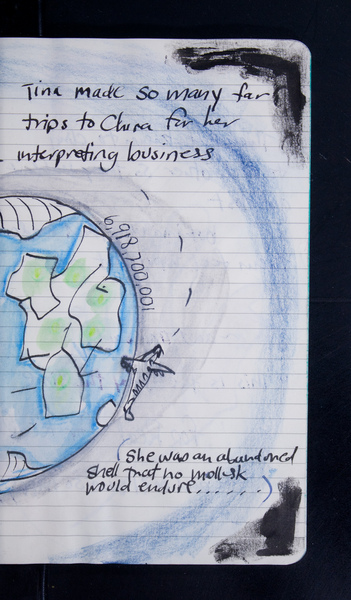 Tina made so many far
trips to China for her
interpreting business
6,918,700,001
(She was an abandoned
shell that no mollusk
would endure.......)